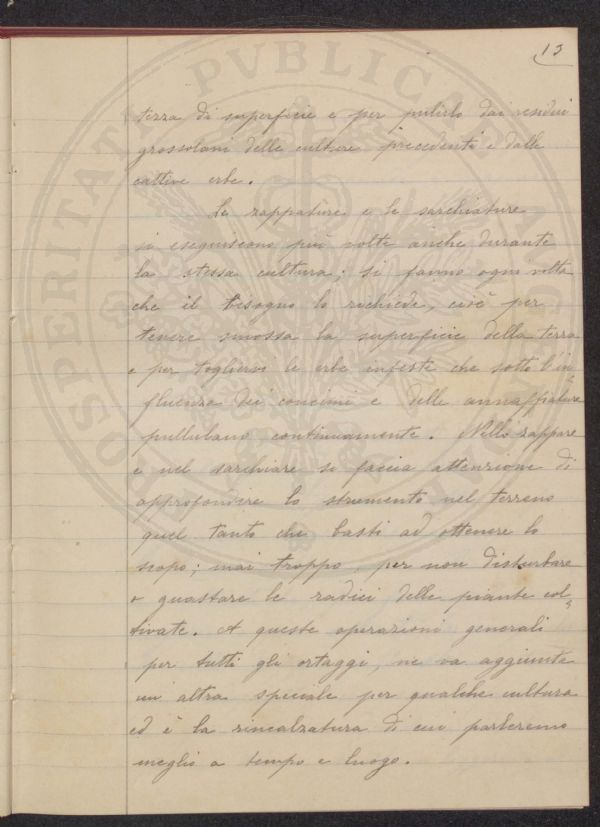 13
terra di superficie e per pulirlo dai residui
grossolani delle culture precedenti e dalle
cattive erbe.
Le zappature e le sarchiature
si eseguiscono più volte anche durante
la stessa cultura; si fanno ogni volta
che il bisogno lo richiede, cioè per
tenere smossa la superficie della terra
e per togliervi le erbe infeste che sotto l'in=
fluenza dei concimi e delle annaffiature
pullulano continuamente. Nello zappare
e nel sarchiare si faccia attenzione di
approfondire lo strumento nel terreno
quel tanto che basti ad ottenere lo
scopo; mai troppo, per non disturbare
o guastare le radici delle piante col=
tivate. A queste operazioni generali
per tutti gli ortaggi, ne va aggiunta
un'altra speciale per qualche cultura
ed è la rincalzatura di cui parleremo
meglio a tempo e luogo.
POSPERITATI PVBLICAE